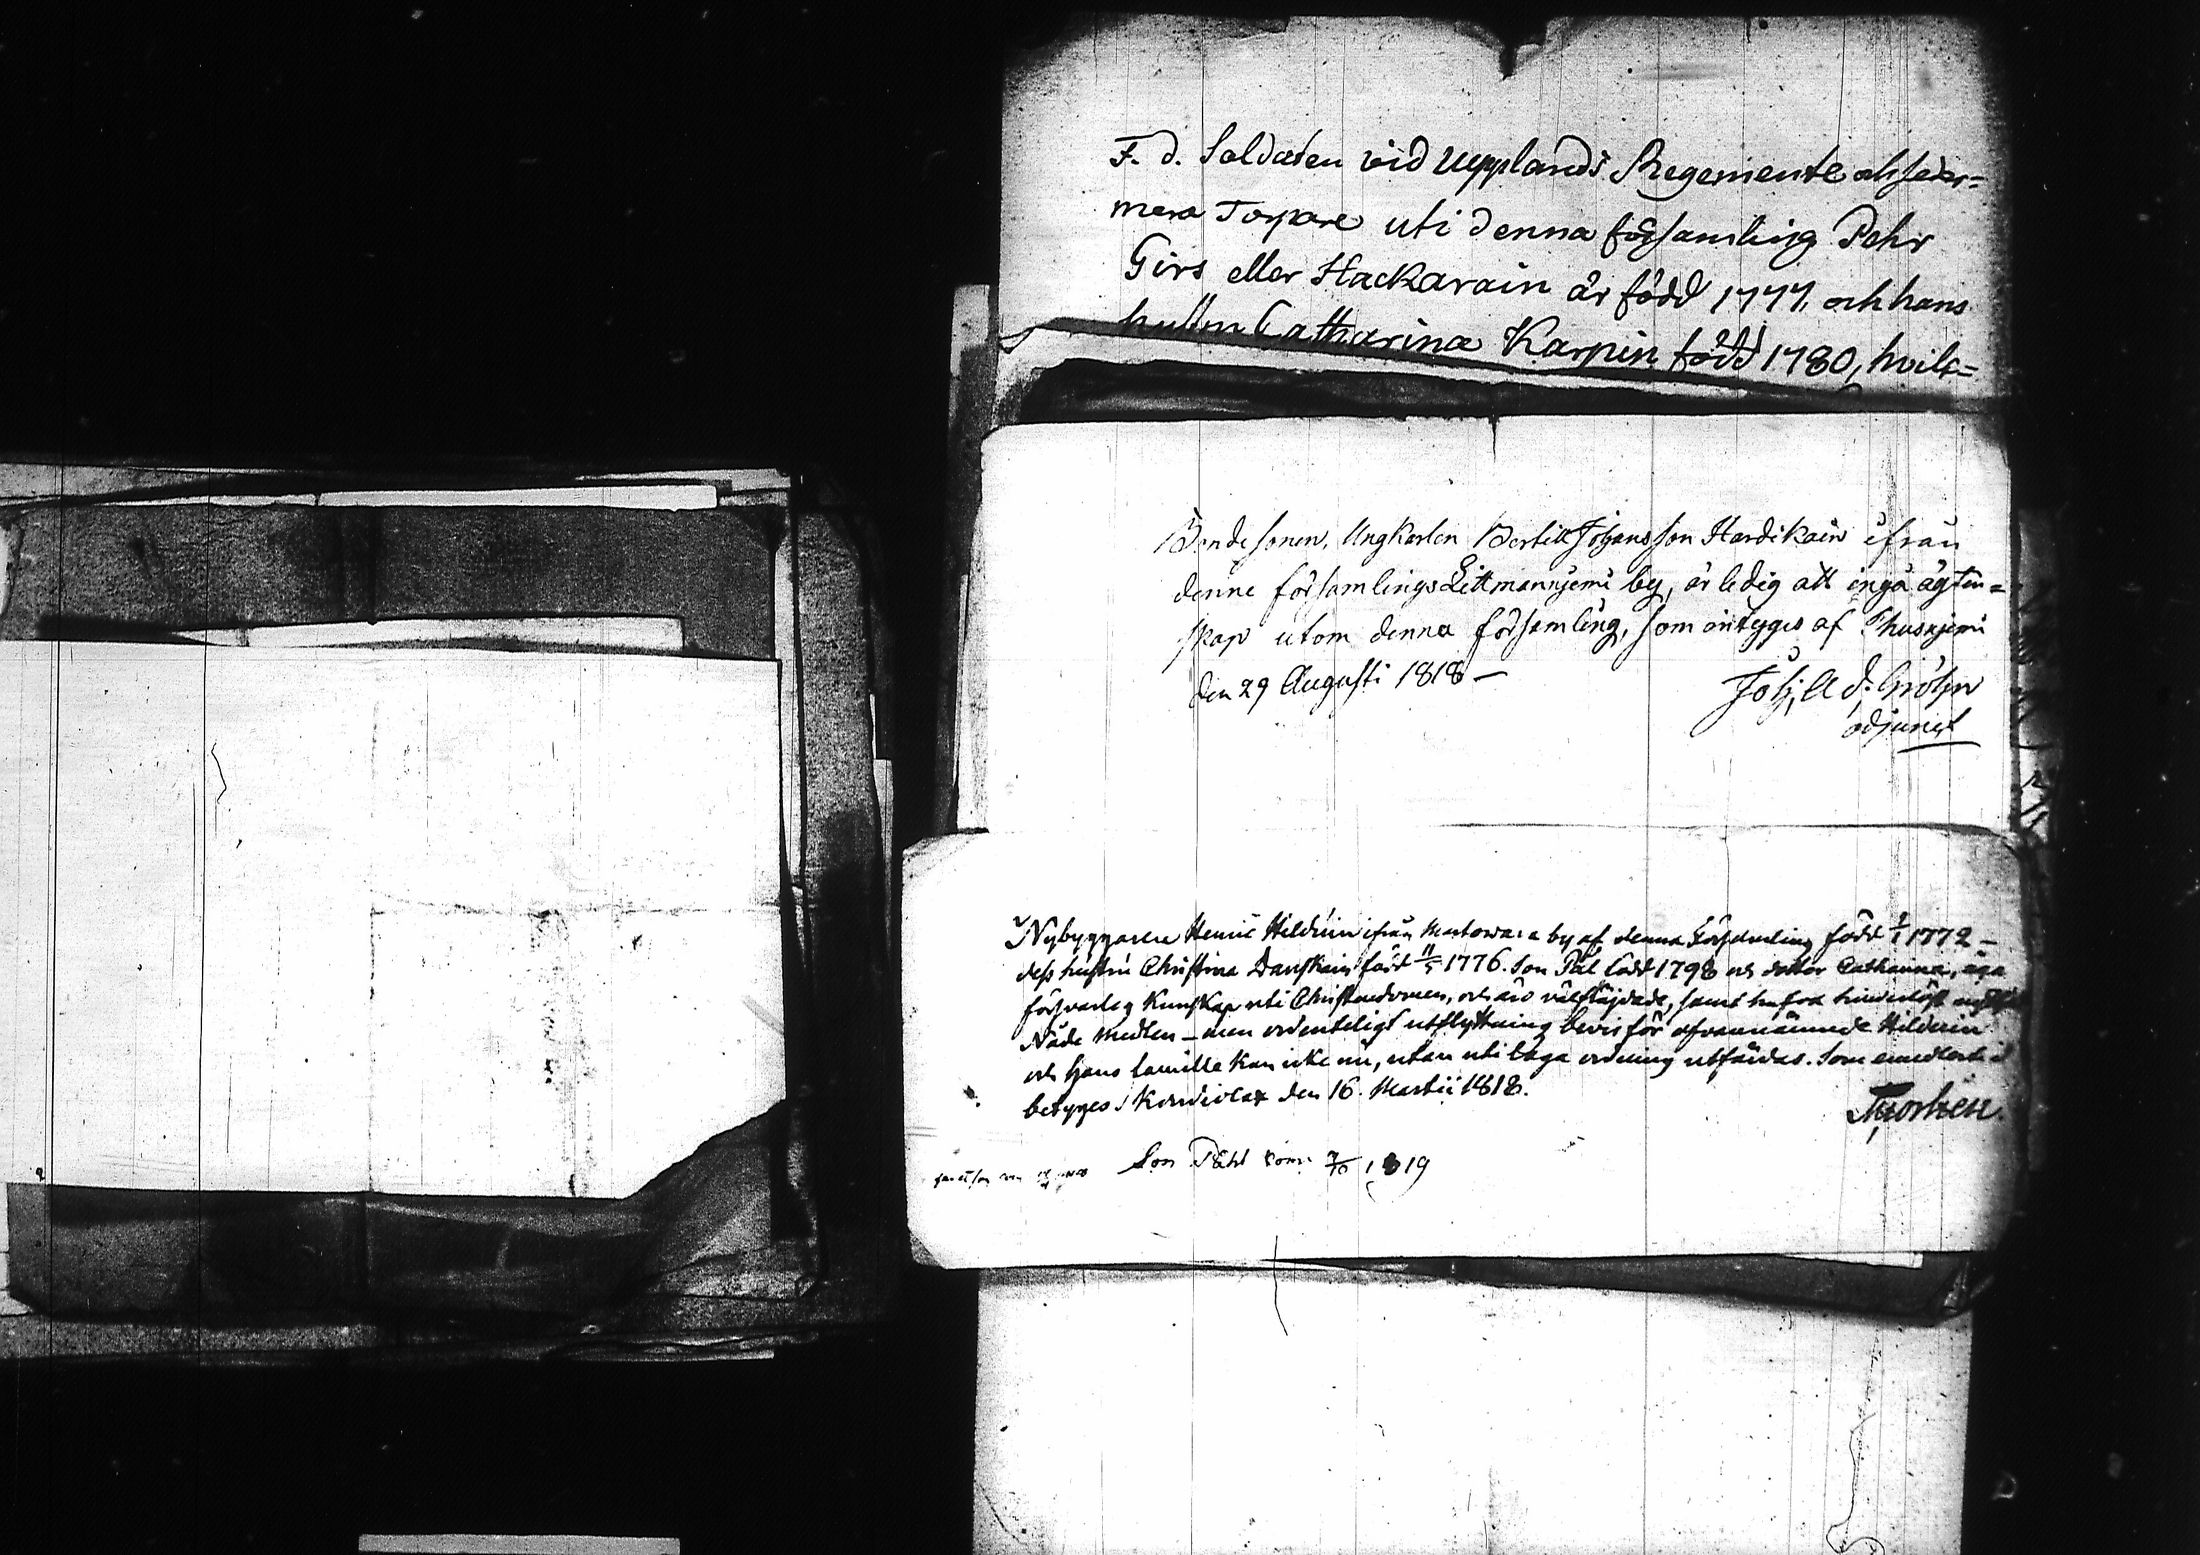 F. d. Soldaten vid Upplands Regemente och seder=
mera Torpare uti denna församling Pehr
Girs eller Hackarain är född 1777, och hans
hustru Catharina Karpin född 1780, hvilk=
Bonde sonen, Ungkarlen Bertill Johansson Hardikain ifrån
denne församlings Littmanniemi by, är ledig att ingå ägten=
skap utom denna församling, som intyges af Thusniemi
den 29 Augusti 1818 —
Joh. Ad. Gröhn
adjunct
Nybyggaren Henric Hildnin ifrån Martowara by af denna Församling född 1/1 1772 —
dess hustru Christina Danskain född 11/5 1776. Son Pål född 1798 och dotter Catharina, äga
försvarlig Kunskap uti Christendomen, och äro välfräjdade, samt hafva hinderlöst
Nåde medlen — men ordenteligt utflyttning bevis för ofvannämnde Hildnin
och hans famille kan icke nu, utan uti laga ordning utfärdas. Som emedlertid
betyges i Kondiolax den 16. Martii 1818.
Son Påhl kom 7/10 1819